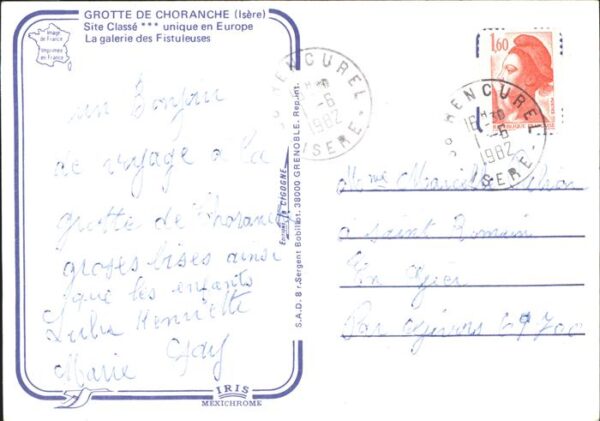 GROTTE DE CHORANCHE (Isère)
Site Classé *** unique en Europe
La galerie des Fistuleuses
Image de France
Imprimée en France
un Bonjour
de voyage a la
grotte de Choranche
groses bises ainsi
que les enfants
Lulu Henriette
Marie
Editions "LA CIGOGNE"
S.A.D. 8 r. Sergent Bobillot. 38000 GRENOBLE. Rep. int.
IRIS
MEXICHROME
38 RENCUREL
1-6
1982
ISERE
1,60
REPUBLIQUE FRANCAISE
38 RENCUREL
16H30
1-6
1982
ISERE
Mme
à Saint Romain
En Gier
Par Givors 69700